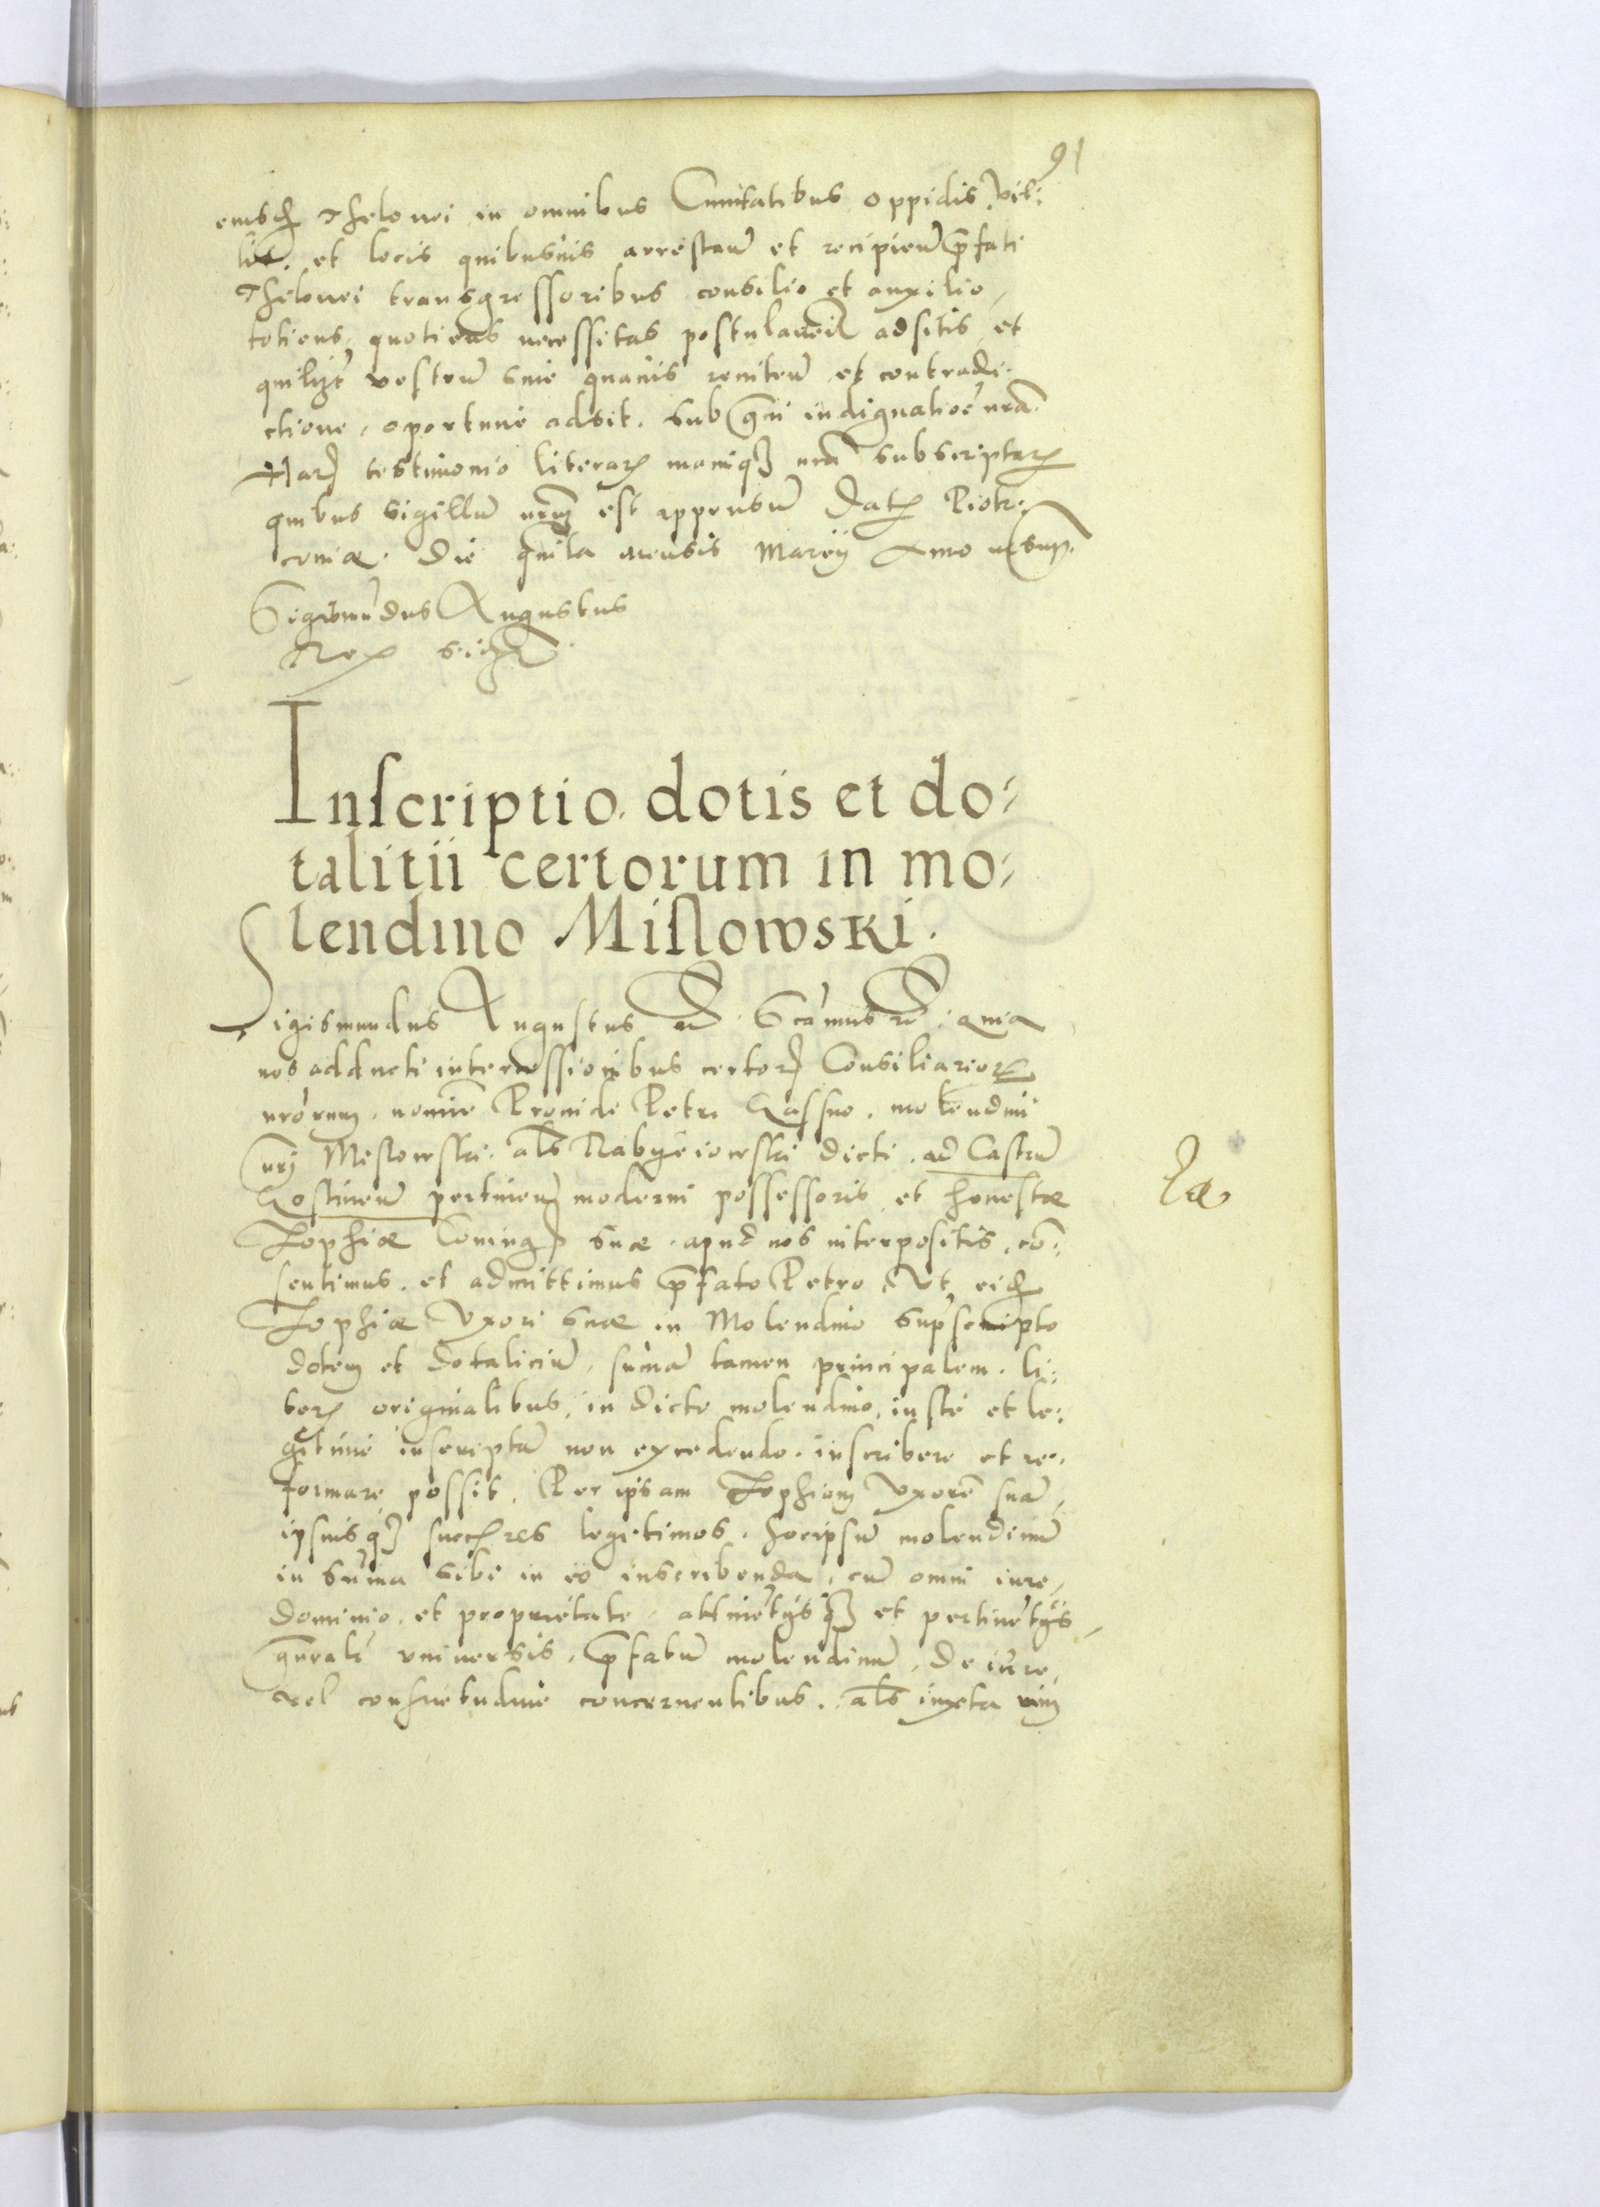 91
eiusd Thelonei in omnibus Ciuitatibus oppidis, vil:
lis. et locis quibusuis arrestaū et recipieñ p̄fati
Thelonei transgressoribus consilio et auxilio,
totiens, quotiens necessitas postulauerit adsitis, et
quilibet vestrū sine quauis reniteñ et contradi-
ctione, oportune adsit. sub graui indignatiōe nr̄a.
Harū testimonio literarū manuqȝ nr̄a subscriptarū
quibus sigillū nr̄m est appensū Datū Piotr:
couiæ. Die quīta mensis Marcij Anno ut sup.
Sigismūdus Augustus
Rex sszt
Inscriptio. dotis et do:
talitii certorum in mo:
lendino Mislowski.
Sigismundus Augustus etc. Sc̄amus etc. Quia
nos adducti intercessionibus certorū Consiliariorū
nr̄orum. nomine Prouidi Petri Kassno. molendini
nr̄i Mislowski. al̄s Nabyeiowski dicti. ad Castrū
Kostineñ pertineñ moderni possessoris et honestæ
Zophiæ Coniugis suæ. apud nos interpositis, con:
sentimus. et admittimus p̄fato Petro Vt eid
Zophiæ Vxori suæ in Molendino supscripto
dotem et dotaliciū, sum̄ā tamen principalem. li:
teris originalibus, in dicto molendino, iuste et le:
gitime inscriptā non excedendo. inscribere et re:
formare possit. Per ipsam Zophiam Vxorē suā,
ipsiusqȝ succres legitimos. hocipsū molendinū
in sum̄a sibi in eo inscribenda, cū omni iure,
dominio. et proprietate, attinētijsqȝ et pertinētijs,
gn̄rali vniuersis, p̄fatū molendinū, de iure,
vel consuetudine concernentibus. al̄s iuxta vim